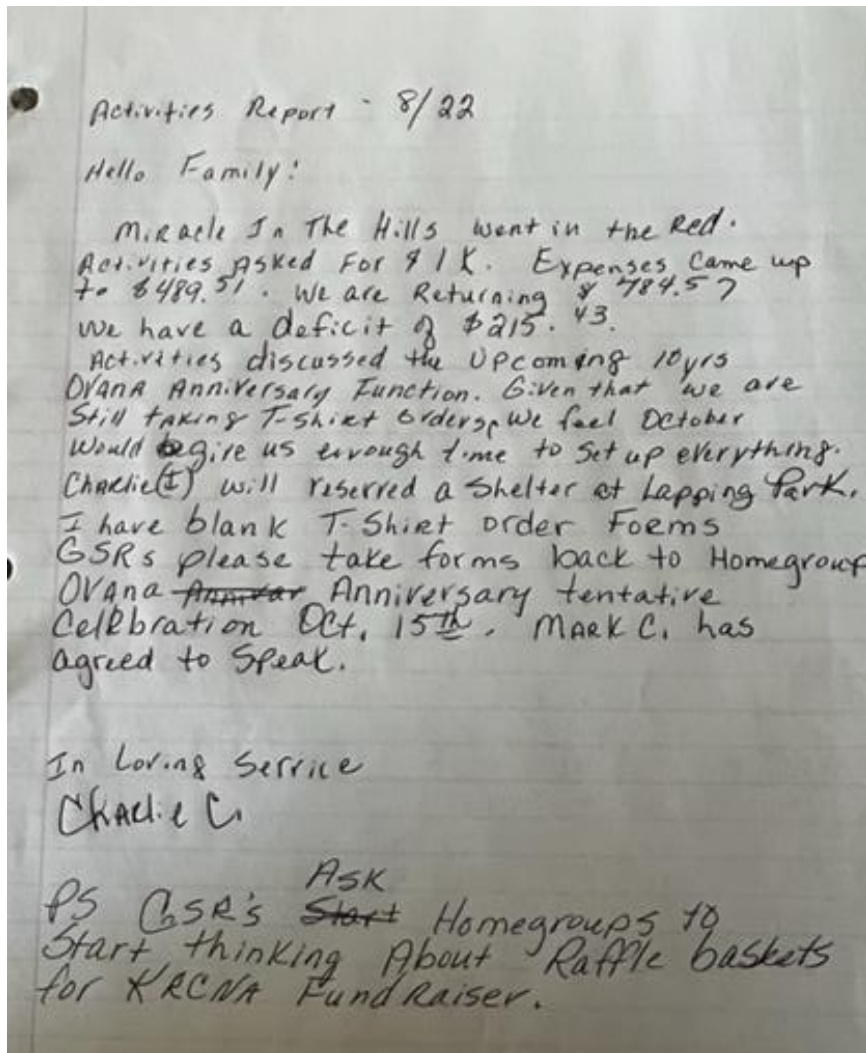 Activities Report - 8/22
Hello Family!
Miracle In The Hills went in the Red.
Activities Asked For $1K. Expenses Came up
to $489.51. We are Returning $784.57
we have a deficit of $215.43.
Activities discussed the Upcoming 10yrs
OVANA Anniversary Function. Given that we are
Still taking T-Shirt orders, We feel October
Would give us enough time to set up everything.
Charlie(I) will reserred a Shelter at Lapping Park.
I have blank T-Shirt order Forms
GSRs please take forms back to Homegroup
OVANA Anniversary tentative
Celebration Oct. 15th. Mark C. has
agreed to Speak.
In Loving Service
Charlie C.
Ask
PS GSR's Start Homegroups to
Start thinking About Raffle baskets
for KRCNA FundRaiser.